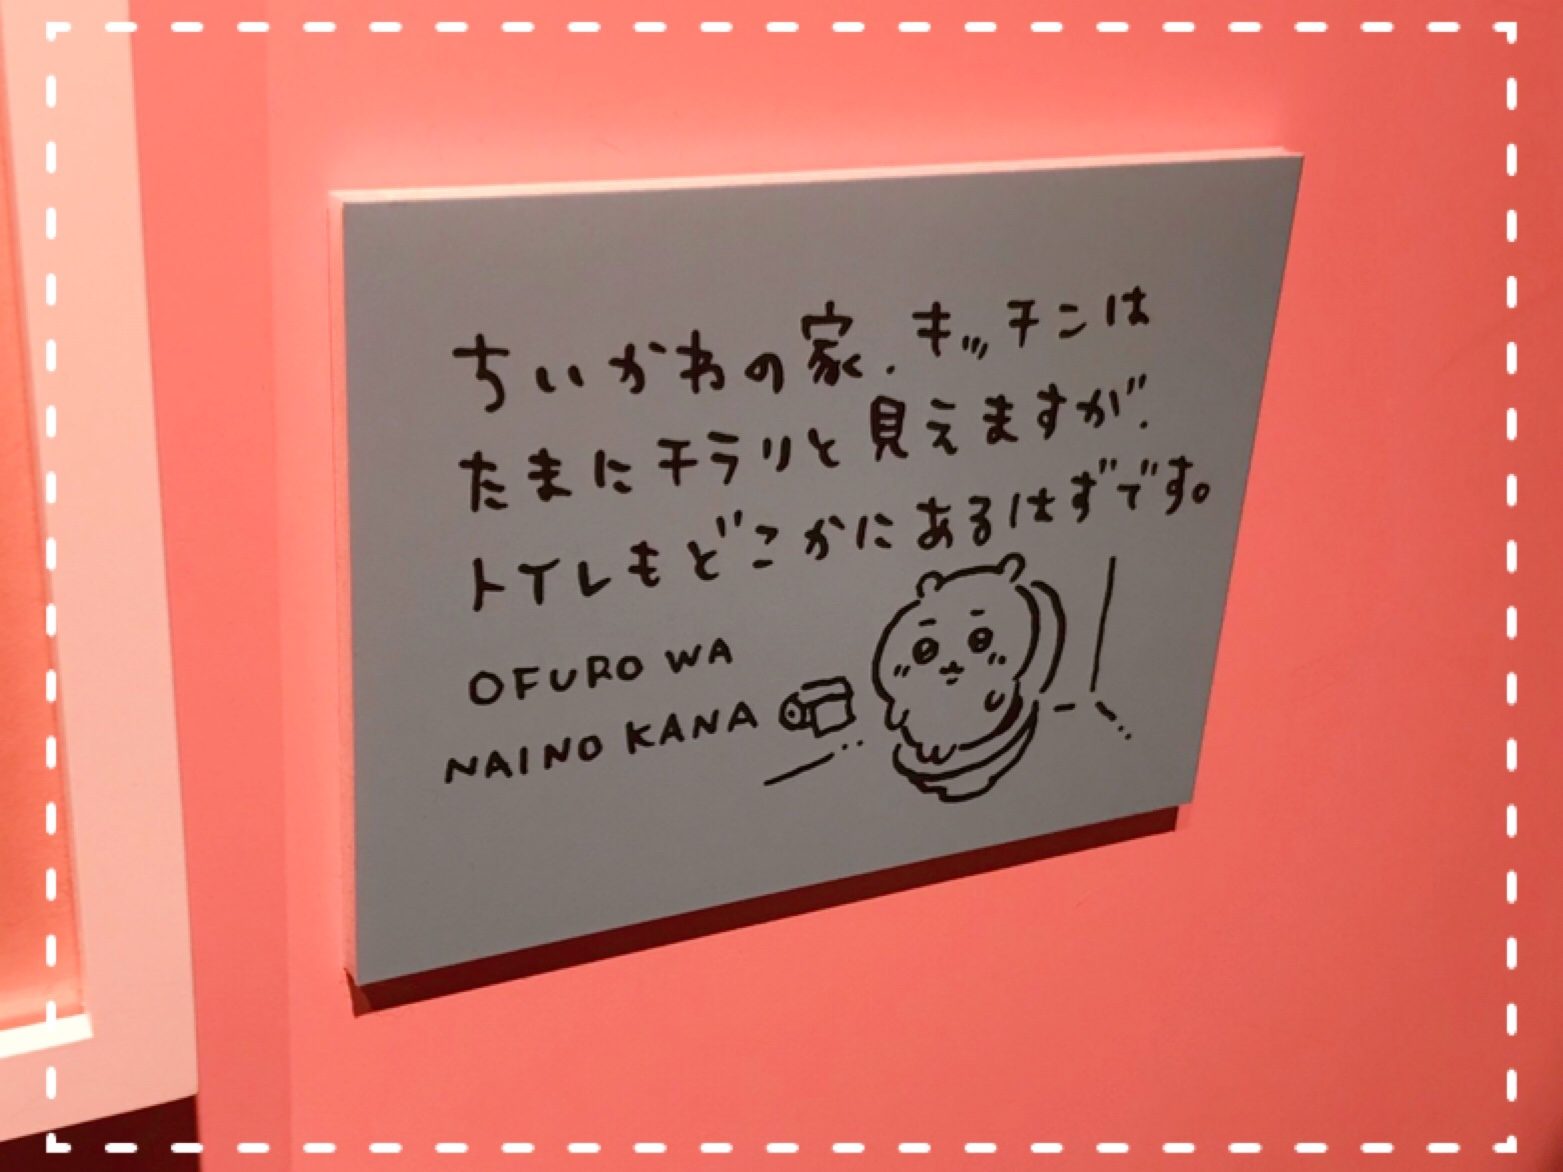 ちいかわの家、キッチンは
たまにチラリと見えますが、
トイレもどこかにあるはずです。
OFURO WA
NAINO KANA